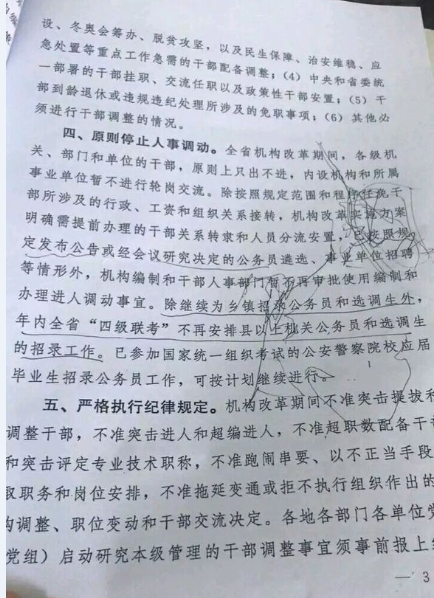 设、冬奥会筹办、脱贫攻坚，以及民生保障、治安维稳、应
急处置等重点工作急需的干部配备调整；(4) 中央和省委统
一部署的干部挂职、交流任职以及政策性干部安置；(5) 干
部到龄退休或违规违纪处理所涉及的免职事项；(6) 其他必
须进行干部调整的情况。
四、原则停止人事调动。全省机构改革期间，各级机
关、部门和单位的干部，原则上只出不进，内设机构和所属
事业单位暂不进行轮岗交流。除按照规定范围和程序任免干
部所涉及的行政、工资和组织关系接转，机构改革实施方案
明确需提前办理的干部关系转隶和人员分流安置，已按照规
定发布公告或经会议研究决定的公务员遴选、事业单位招聘
等情形外，机构编制和干部人事部门暂不再审批使用编制和
办理进人调动事宜。除继续为乡镇招录公务员和选调生外，
年内全省“四级联考”不再安排县以上机关公务员和选调生
的招录工作。已参加国家统一组织考试的公安警察院校应届
毕业生招录公务员工作，可按计划继续进行。
五、严格执行纪律规定。机构改革期间不准突击提拔和
调整干部，不准突击进人和超编进人，不准超职数配备干
和突击评定专业技术职称，不准跑闹串要、以不正当手段
取职务和岗位安排，不准拖延变通或拒不执行组织作出的
构调整、职位变动和干部交流决定。各地各部门各单位党
党组）启动研究本级管理的干部调整事宜须事前报上
— 3